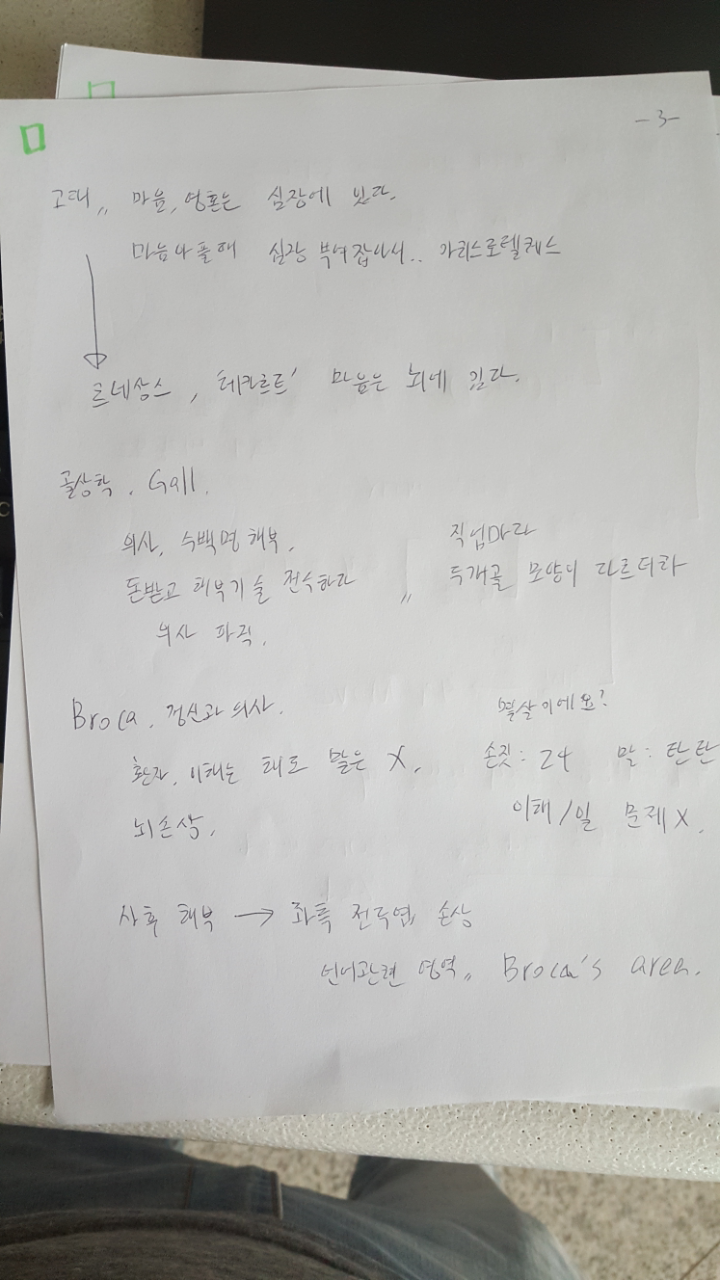 -3-
고대,, 마음, 영혼은 심장에 있다.
마음아플때 심장 부여잡아서.. 아리스토텔레스
르네상스, '데카르트' 마음은 뇌에 있다.
골상학. Gall.
의사, 수백명 해부,
돈받고 해부기술 전수하다
의사 파직.
,, 직업마다
두개골 모양이 다르더라
Broca. 정신과 의사.
환자, 이해는 해도 말은 X.
뇌손상.
몇살이에요?
손짓: 24 말: 탄탄
이해/일 문제X.
사후 해부 → 좌측 전두엽 손상
언어관련 영역,, Broca's area.